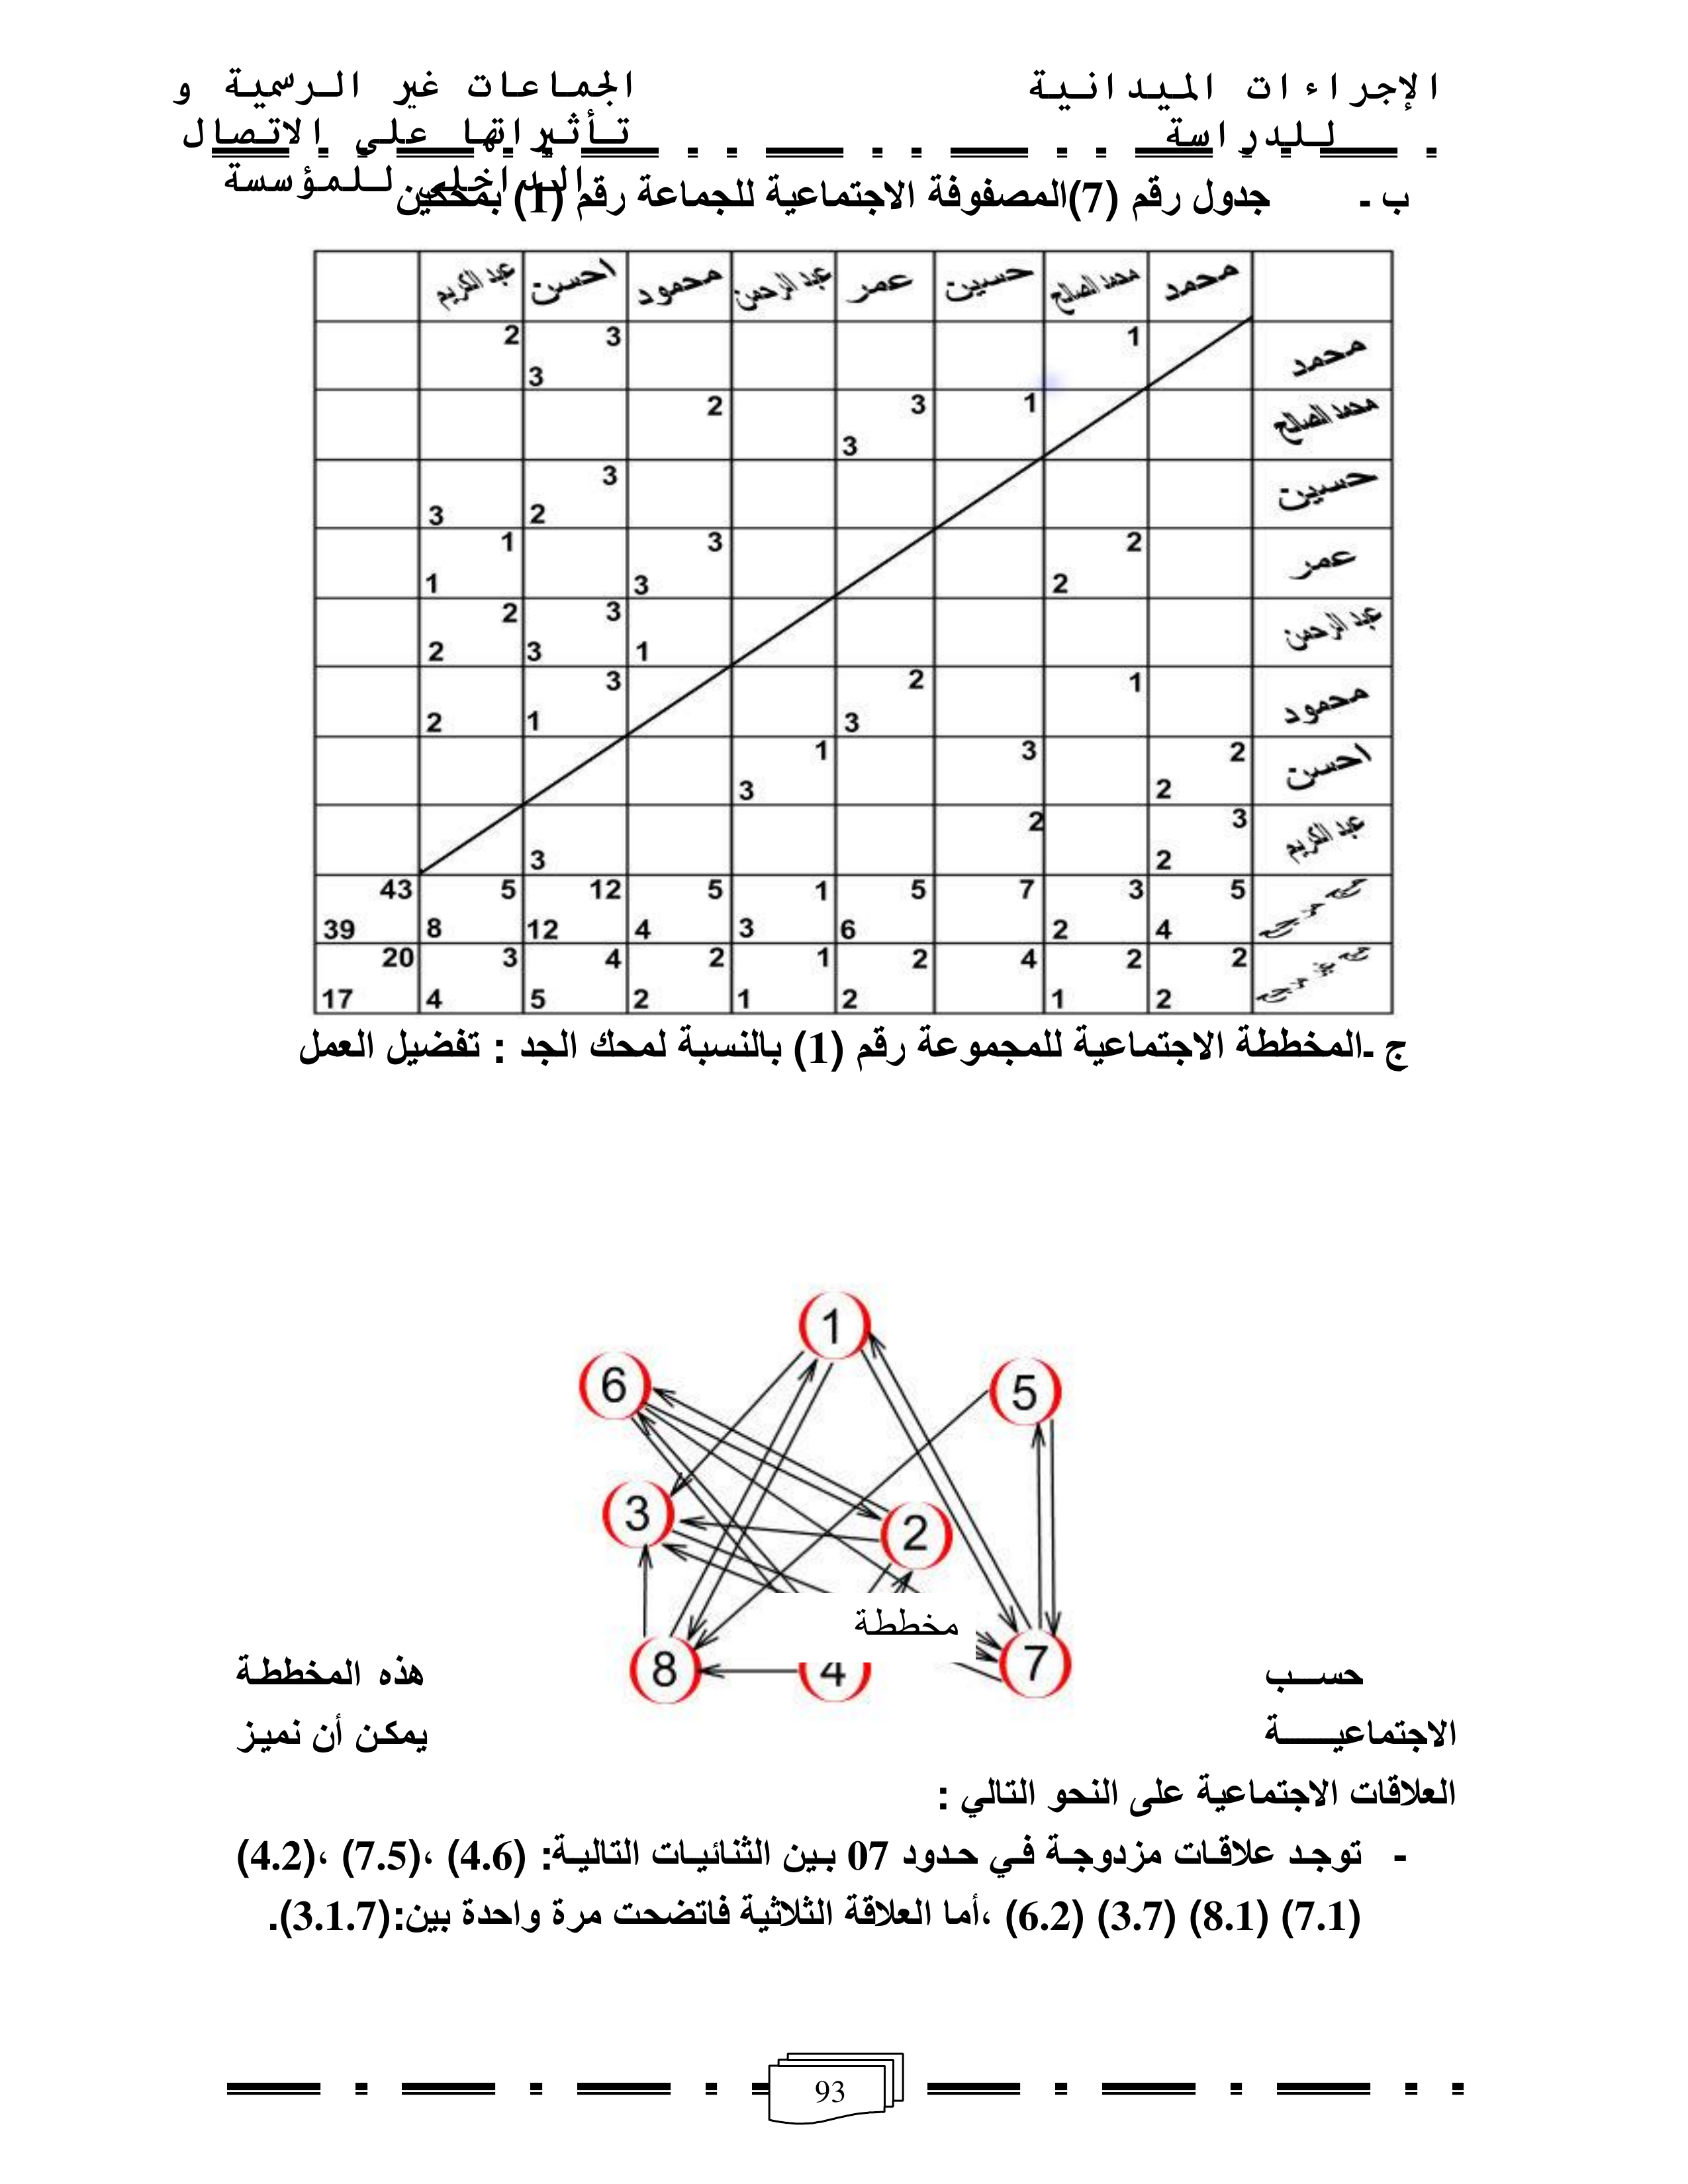 الإجراءات الميدانية للدراسة
الجماعات غير الرسمية و
تأثيراتها على الاتصال
الداخلي للمؤسسة
ب - جدول رقم (7)المصفوفة الاجتماعية للجماعة رقم (1) بمحكين
محمد محمد الصالح حسين عمر عبد الرحمن محمود احسن عبد الكريم
محمد 1 3 3 2
محمد الصالح 1 3 3 2
حسين 3 2 3
عمر 2 2 3 3 1 1
عبد الرحمن 1 3 3 2 2
محمود 1 2 3 3 1 2
احسن 2 2 3 1 3
عبد الكريم 3 2 2 3
5 4 3 2 7 5 6 1 3 5 4 12 12 5 8 43 39
2 2 2 1 4 2 2 1 1 2 2 4 5 3 4 20 17
ج -المخططة الاجتماعية للمجموعة رقم (1) بالنسبة لمحك الجد : تفضيل العمل
1
6
5
3
2
مخططة
8
4
7
حسب هذه المخططة
الاجتماعية يمكن أن نميز
العلاقات الاجتماعية على النحو التالي :
- توجد علاقات مزدوجة في حدود 07 بين الثنائيات التالية: (4.6) ،(7.5)، (4.2)،
(7.1) (8.1) (3.7) (6.2) ،أما العلاقة الثلاثية فاتضحت مرة واحدة بين:(3.1.7).
93